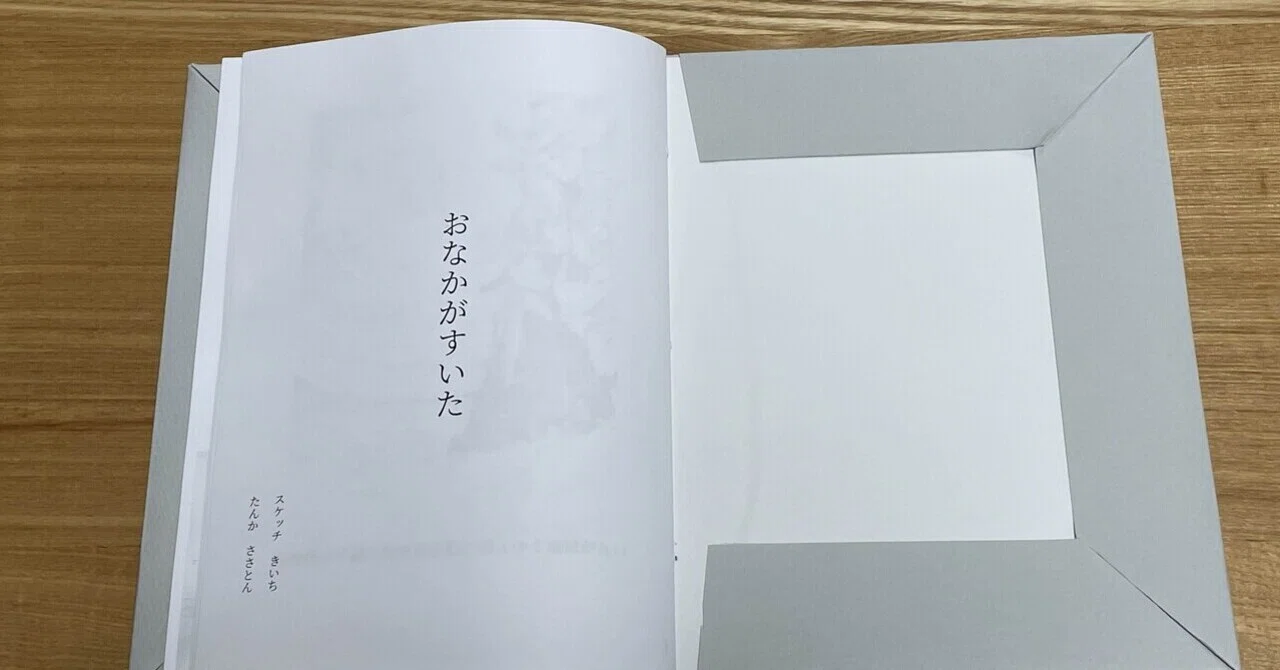 おなかがすいた
スケッチ　きいち
たんか　ささとん